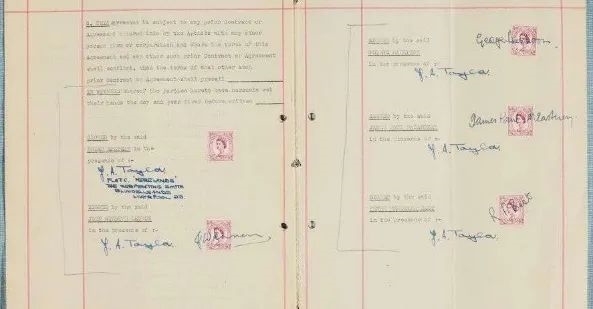 THIS Agreement is subject to any prior Contract or
Agreement entered into by the Artists with any other
person firm or corporation and where the terms of this
Agreement and any other such prior Contract or Agreement
shall conflict, then the terms of that other such
prior Contract or Agreement shall prevail
IN WITNESS whereof the parties hereto have hereunto set
their hands the day and year first before written
SIGNED by the said
in the
presence of :-
J. A. Taylor
FLAT C
THE SERPENTINE SOUTH
BLUNDELLSANDS
LIVERPOOL 23.
SIGNED by the said
JOHN WINSTON LENNON
in the presence of :-
J. A. Taylor
SIGNED by the said
George Harrison
GEORGE HARRISON
in the presence of :-
J. A. Taylor
SIGNED by the said
James Paul McCartney
JAMES PAUL McCARTNEY
in the presence of :-
J. A. Taylor
SIGNED by the said
R P Best
in the presence of :-
J. A. Taylor